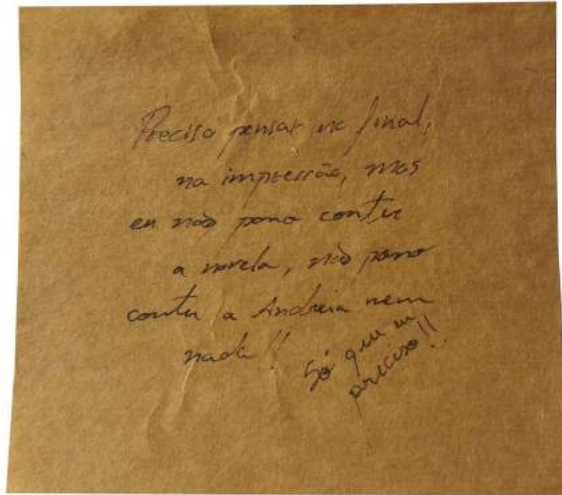 Preciso pensar no final,
na impressão, mas
eu não posso conter
a novela, não posso
conter a Andreia nem
nada!!
Só que eu
preciso!!